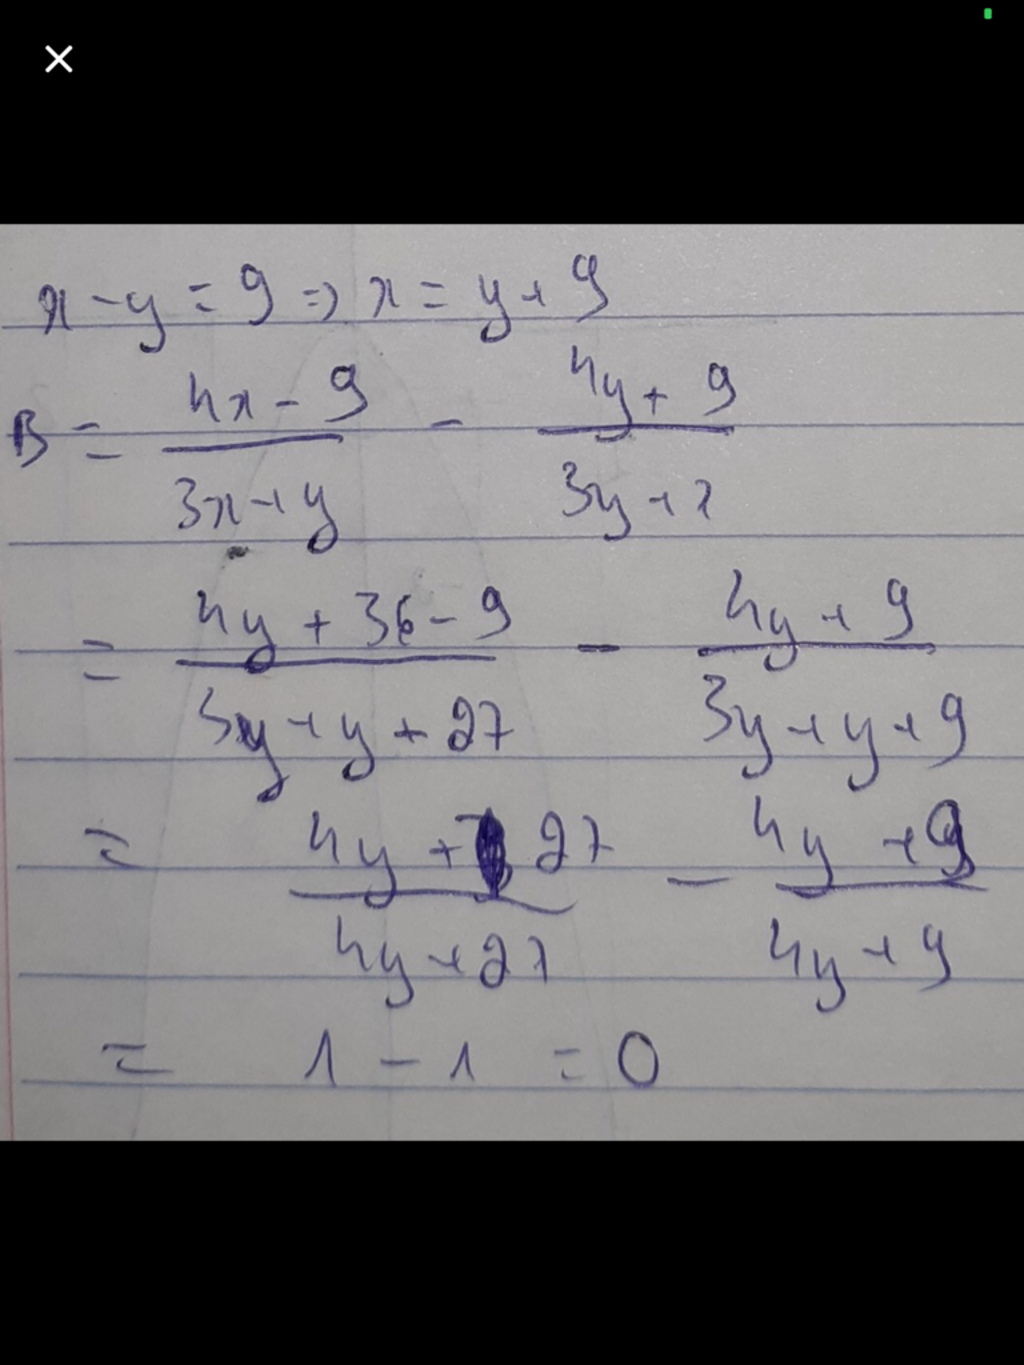 x - y = 9 => x = y + 9
B = (4x - 9)/(3x + y) - (4y + 9)/(3y + x)
= (4y + 36 - 9)/(3y + y + 27) - (4y + 9)/(3y + y + 9)
= (4y + 27)/(4y + 27) - (4y + 9)/(4y + 9)
= 1 - 1 = 0